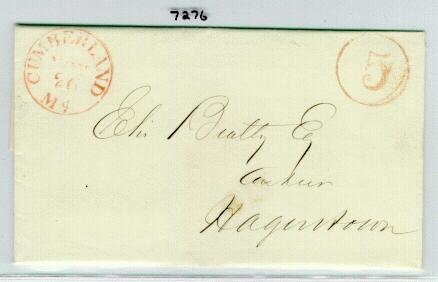 7276
CUMBERLAND
26
Md
5
Eli Beatty Esq
Cashier
Hagerstown